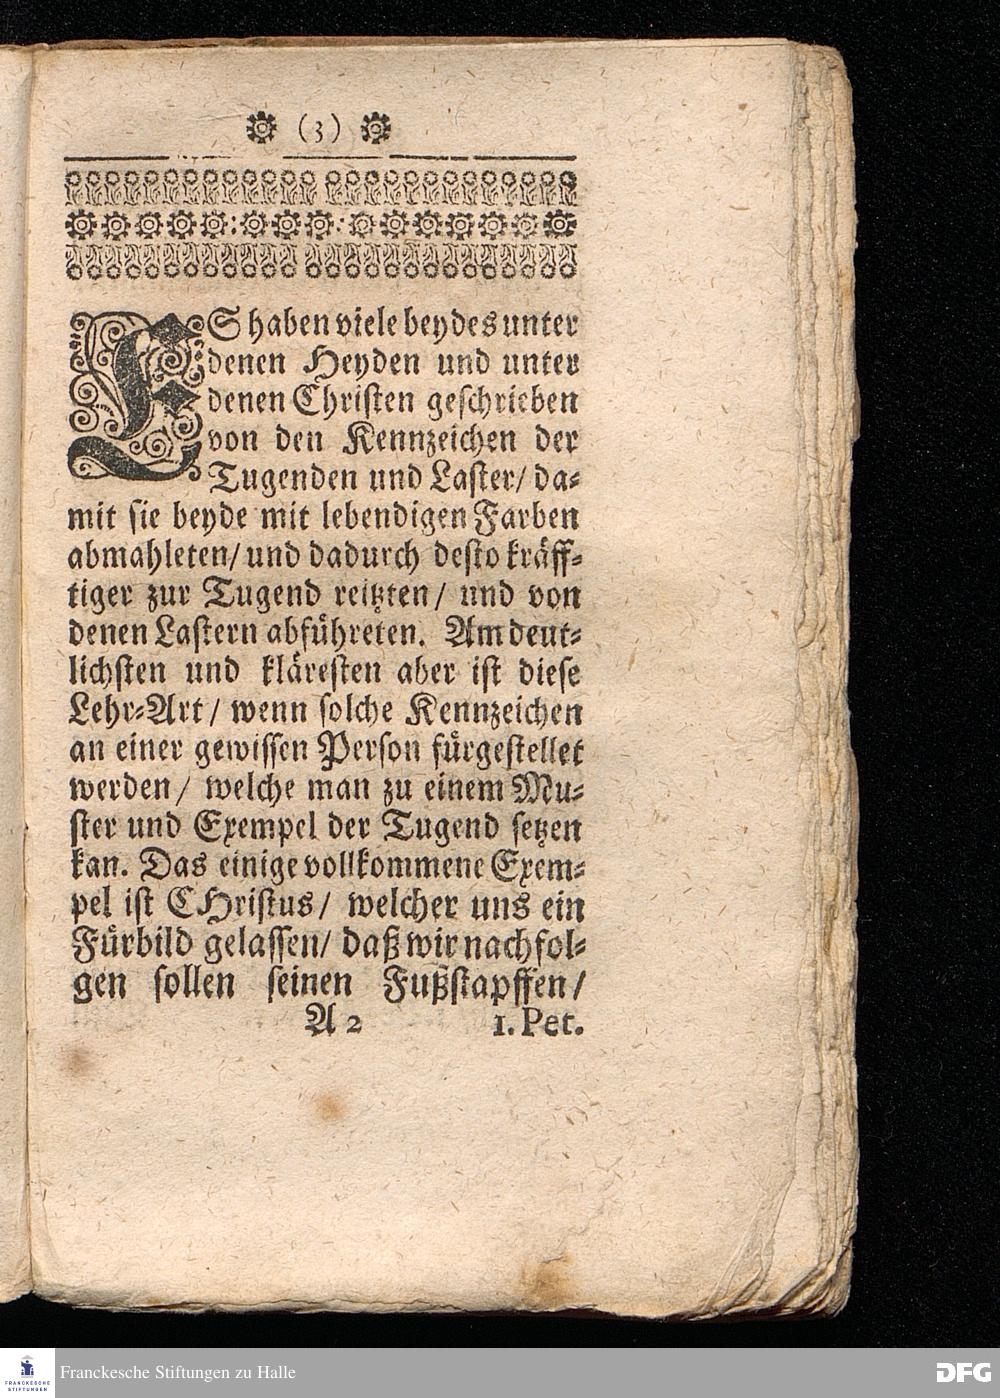 (3)
ES haben viele beydes unter
denen Heyden und unter
denen Christen geschrieben
von den Kennzeichen der
Tugenden und Laster/ da-
mit sie beyde mit lebendigen Farben
abmahleten/ und dadurch desto kräff-
tiger zur Tugend reitzten/ und von
denen Lastern abführeten. Am deut-
lichsten und kläresten aber ist diese
Lehr-Art/ wenn solche Kennzeichen
an einer gewissen Person fürgestellet
werden/ welche man zu einem Mu-
ster und Exempel der Tugend setzen
kan. Das einige vollkommene Exem-
pel ist CHristus/ welcher uns ein
Fürbild gelassen/ daß wir nachfol-
gen sollen seinen Fußstapffen/
A 2 1. Pet.
FRANCKESCHE STIFTUNGEN
Franckesche Stiftungen zu Halle
DFG